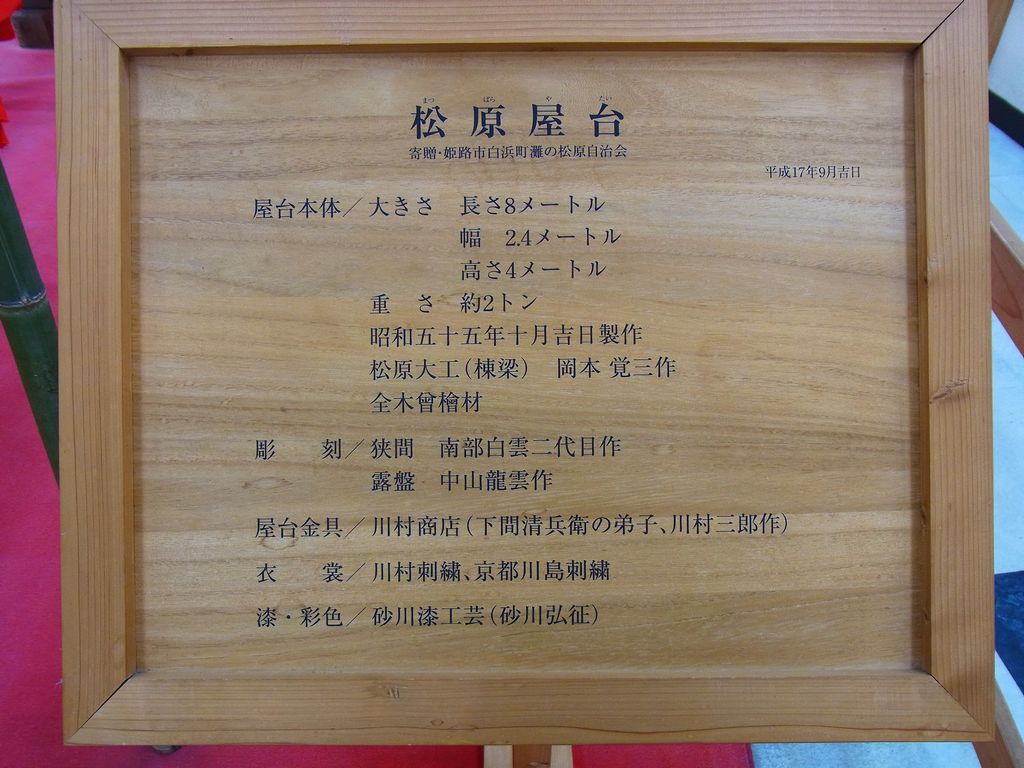 まつ ばら や たい
松原屋台
寄贈・姫路市白浜町灘の松原自治会
平成17年9月吉日
屋台本体／大きさ　長さ8メートル
幅　2.4メートル
高さ4メートル
重　さ　約2トン
昭和五十五年十月吉日製作
松原大工（棟梁）　岡本 覚三作
全木曾檜材
彫　　刻／狭間　南部白雲二代目作
露盤　中山龍雲作
屋台金具／川村商店（下間清兵衛の弟子、川村三郎作）
衣　　裳／川村刺繍、京都川島刺繍
漆・彩色／砂川漆工芸（砂川弘征）